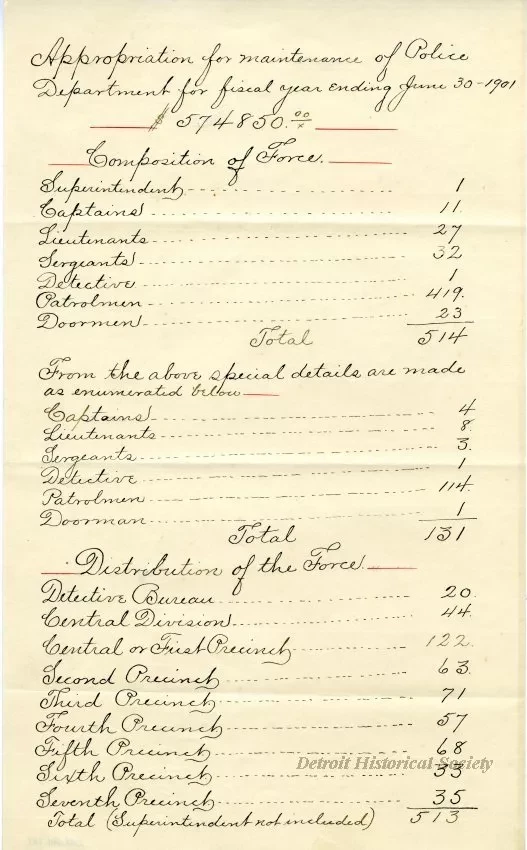 Appropriation for maintenance of Police
Department for fiscal year ending June 30-1901
$574850.00/x
Composition of Force.
Superintendent 1
Captains 11.
Lieutenants 27
Sergeants 32
Detective 1
Patrolmen 419.
Doormen 23
Total 514
From the above special details are made
as enumerated below
Captains 4
Lieutenants 8.
Sergeants 3.
Detective 1
Patrolmen 114.
Doorman 1
Total 131
Distribution of the Force.
Detective Bureau 20.
Central Division 44.
Central or First Precinct 122.
Second Precinct 63.
Third Precinct 71
Fourth Precinct 57
Fifth Precinct 68
Detroit Historical Society
Sixth Precinct 33
Seventh Precinct 35
Total (Superintendent not included) 513